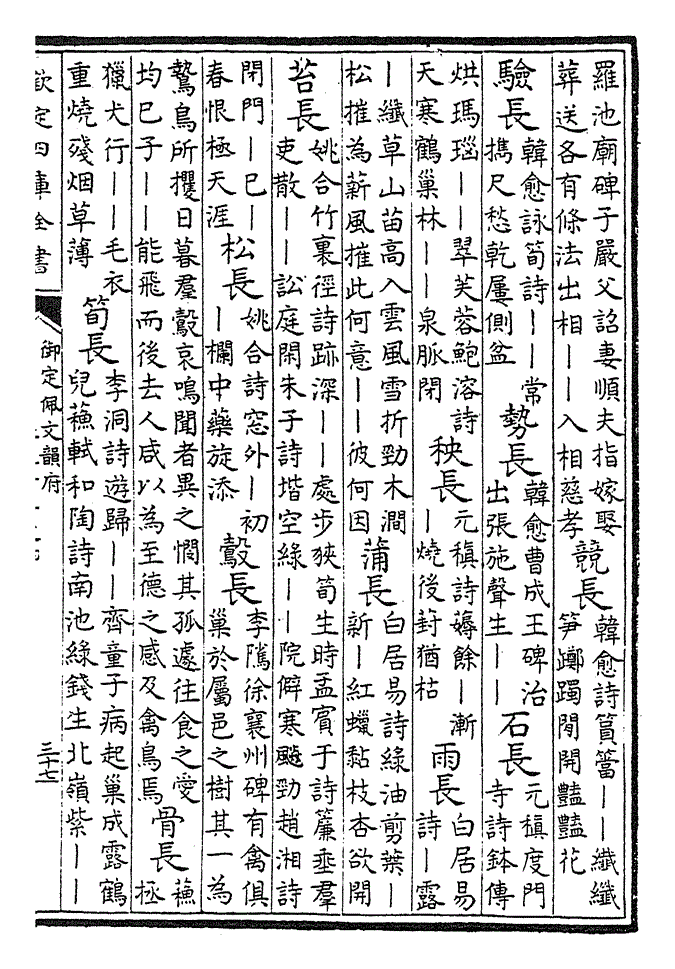 羅池廟碑子嚴父詔妻順夫指嫁娶
葬送各有條法出相｜｜入相慈孝
競長
韓愈詩篔簹｜｜纖纖
笋躑躅閒開豔豔花
驗長
韓愈詠筍詩｜｜常
擕尺愁乾屢側盆
勢長
韓愈曹成王碑治
出張施聲生｜｜
石長
元稹度門
寺詩鉢傳
烘瑪瑙｜｜翠芙蓉鮑溶詩
天寒鶴巢林｜｜泉脈閉
秧長
元稹詩薅餘｜漸
｜燒後葑猶枯
雨長
白居易
詩｜露
｜纖草山苗高入雲風雪折勁木澗
松摧為薪風摧此何意｜｜彼何因
蒲長
白居易詩綠油剪葉｜
新｜紅蠟黏枝杏欲開
苔長
姚合竹裏徑詩跡深｜｜處步狹筍生時孟賔于詩簾垂羣
吏散｜｜訟庭閑朱子詩堦空綠｜｜院僻寒颷勁趙湘詩
閉門｜巳｜
春恨極天涯
松長
姚合詩窓外｜初
｜欄中藥旋添
鷇長
李隲徐襄州碑有禽俱
巢於屬邑之樹其一為
鷙鳥所攫日暮羣鷇哀鳴聞者異之憫其孤遽往食之愛
均巳子｜｜能飛而後去人咸以為至德之感及禽鳥焉
骨長
蘇
拯
獵犬行｜｜毛衣
重燒殘烟草薄
筍長
李洞詩遊歸｜｜齊童子病起巢成露鶴
兒蘇軾和陶詩南池綠錢生北嶺紫｜｜
欽定四庫全書
御定佩文韻府
三十七